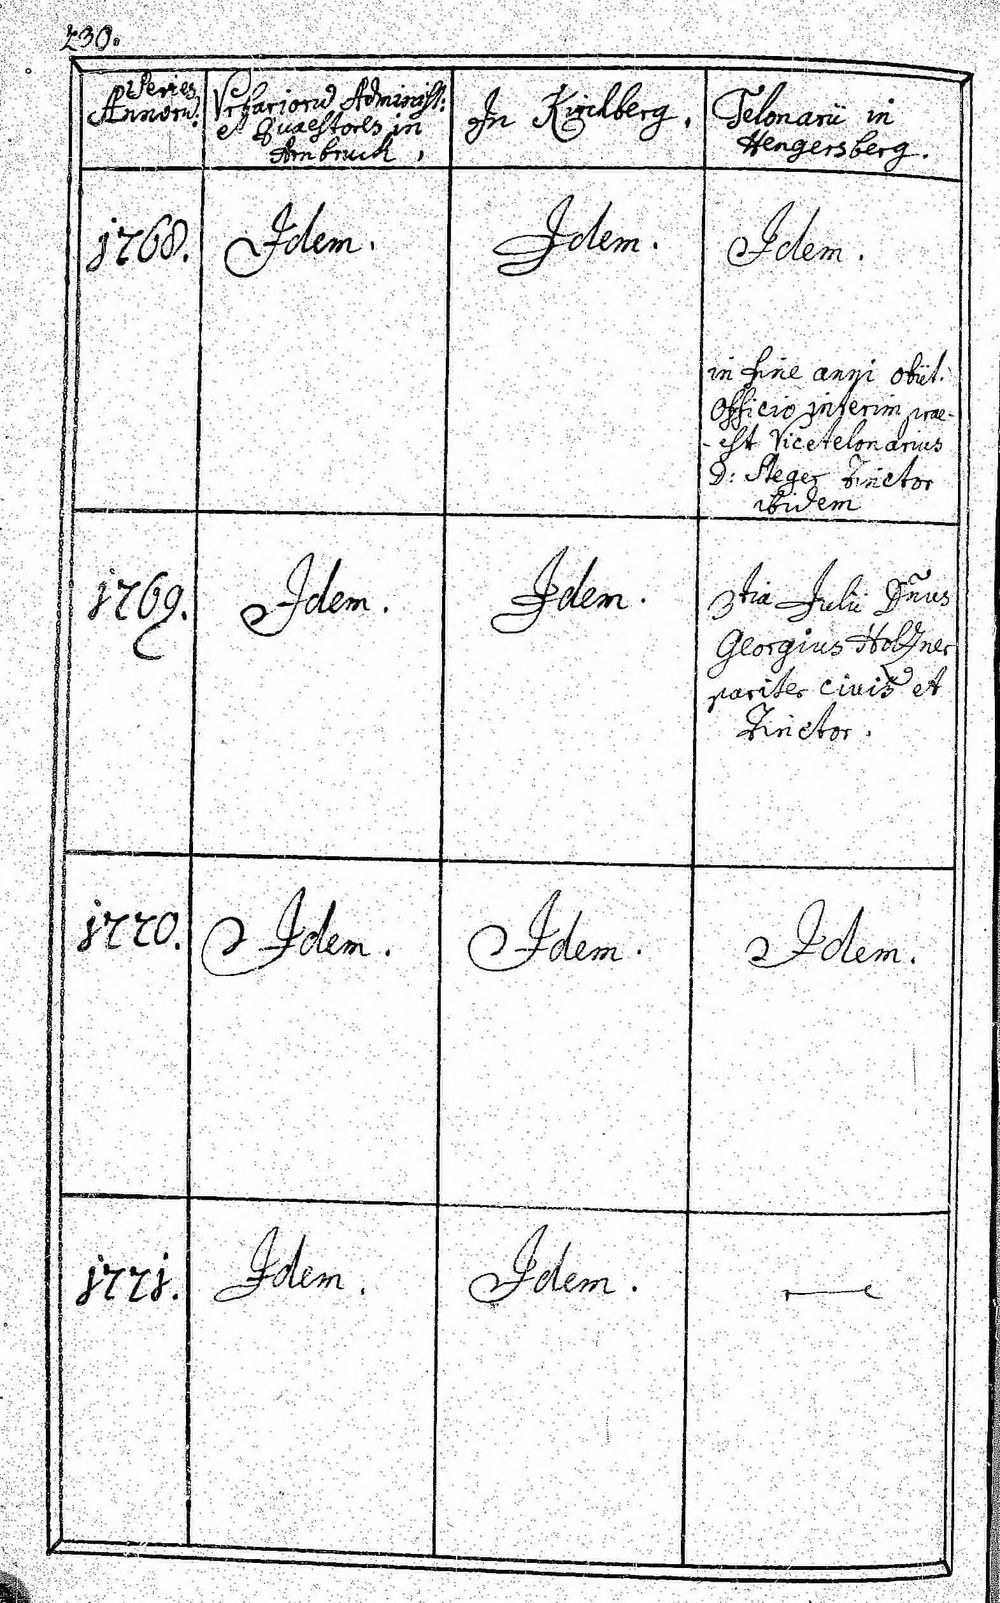 230.
Series
Annorũ.
Vrbariorũ Administ:
et Quaestores in
Arnbruck,
In Kirchberg.
Telonarii in
Hengersberg.
1768.
Idem.
Idem.
Idem.
in fine anni obiit.
Officio interim prae-
-est Vicetelonarius
D: Steger Tinctor
ibidem
1769.
Idem.
Idem.
3tia Julii Dñus
Georgius Holzner
pariter civis et
Tinctor.
1770.
Idem.
Idem.
Idem.
1771.
Idem.
Idem.